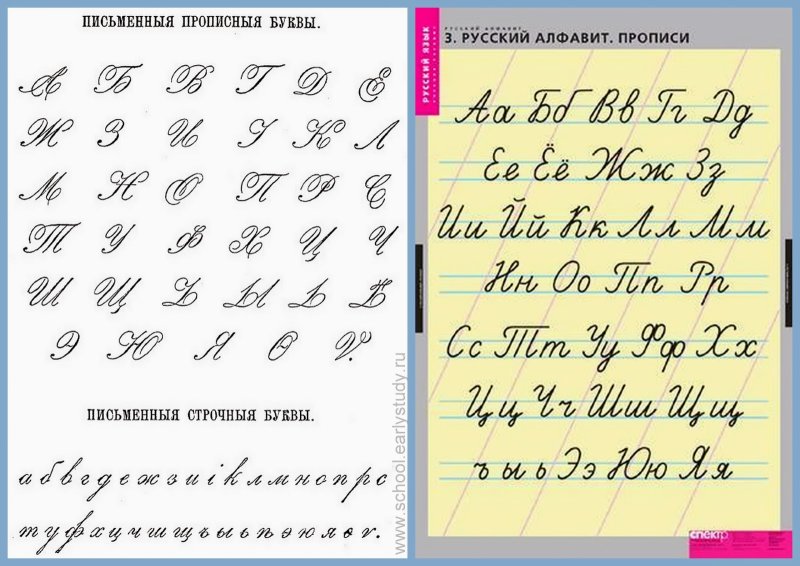 ПИСЬМЕННЫЯ ПРОПИСНЫЯ БУКВЫ.
А Б В Г Д Е
Ж З И І К Л
М Н О П Р С
Т У Ф Х Ц Ч
Ш Щ Ъ Ы Ь Ѣ
Э Ю Я Ѳ Ѵ.
ПИСЬМЕННЫЯ СТРОЧНЫЯ БУКВЫ.
а б в г д е ж з и і к л м н о п р с
т у ф х ц ч ш щ ъ ы ь ѣ э ю я ѳ ѵ.
www.school.earlystudy.ru
РУССКИЙ ЯЗЫК
РУССКИЙ АЛФАВИТ
3. РУССКИЙ АЛФАВИТ. ПРОПИСИ
Аа Бб Вв Гг Дд
Ее Ёё Жж Зз
Ии Йй Кк Лл Мм
Нн Оо Пп Рр
Сс Тт Уу Фф Хх
Цц Чч Шш Щщ
ъ ы ь Ээ Юю Яя
спектр